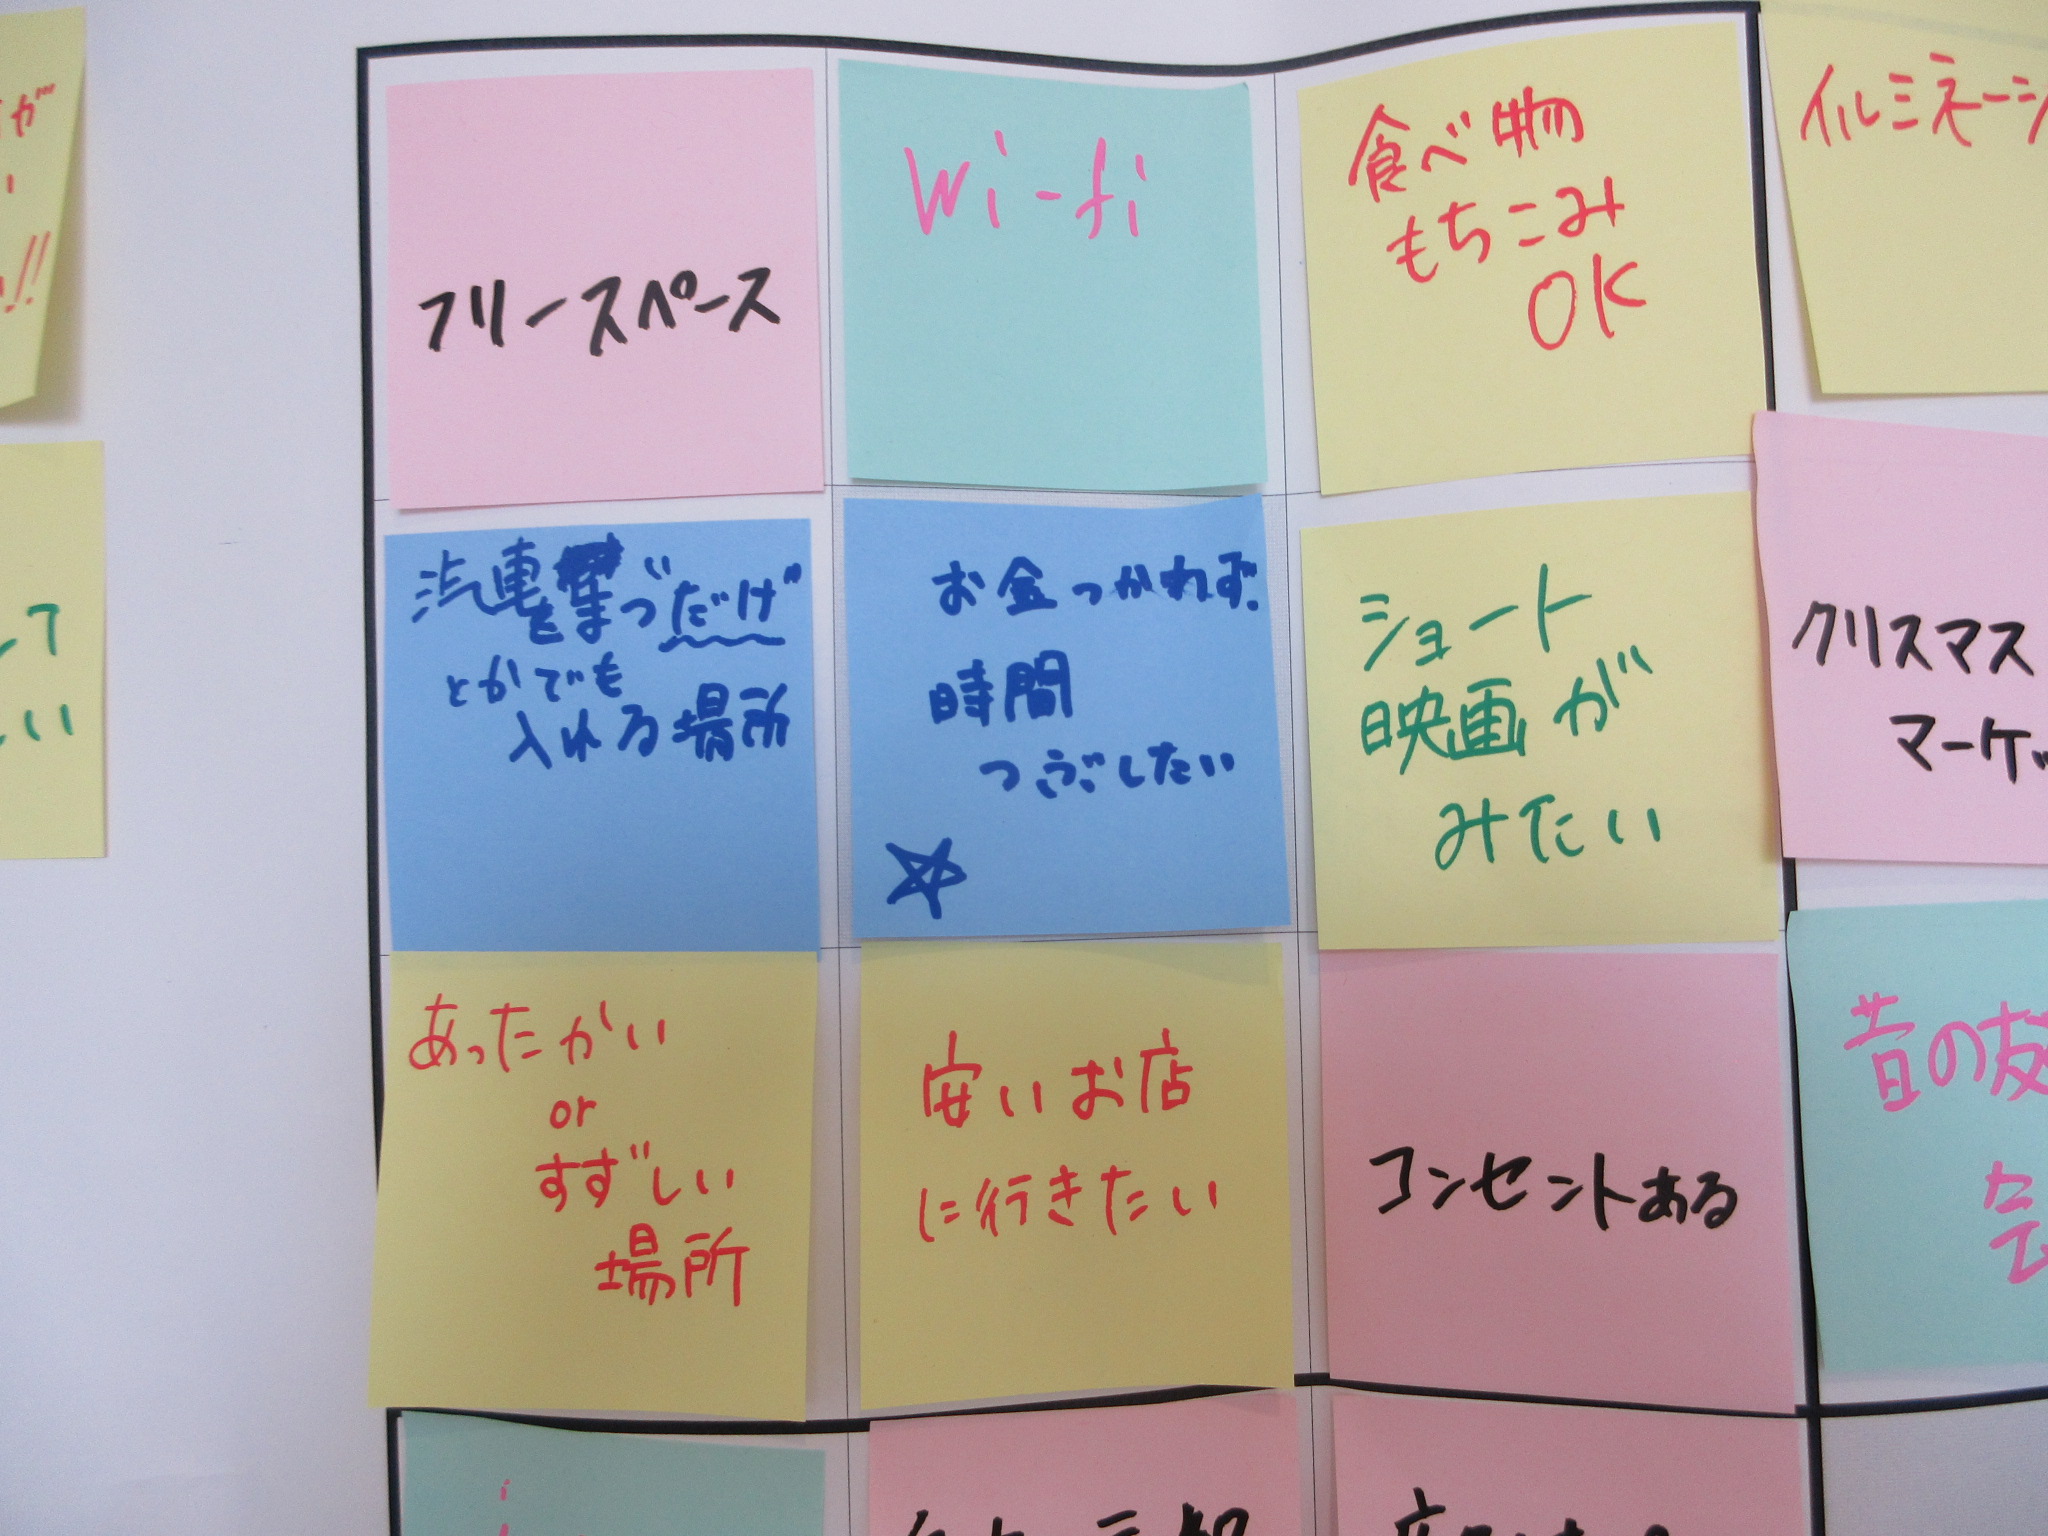 フリースペース
Wi-fi
食べ物
もちこみ
OK
イルミネーシ
汽車を待つ"だけ"
とかでも
入れる場所
お金つかわず、
時間
つぶしたい
ショート
映画が
みたい
クリスマス
マーケッ
あったかい
or
すずしい
場所
安いお店
に行きたい
コンセントある
昔の友
会
が
い
!!
て
い